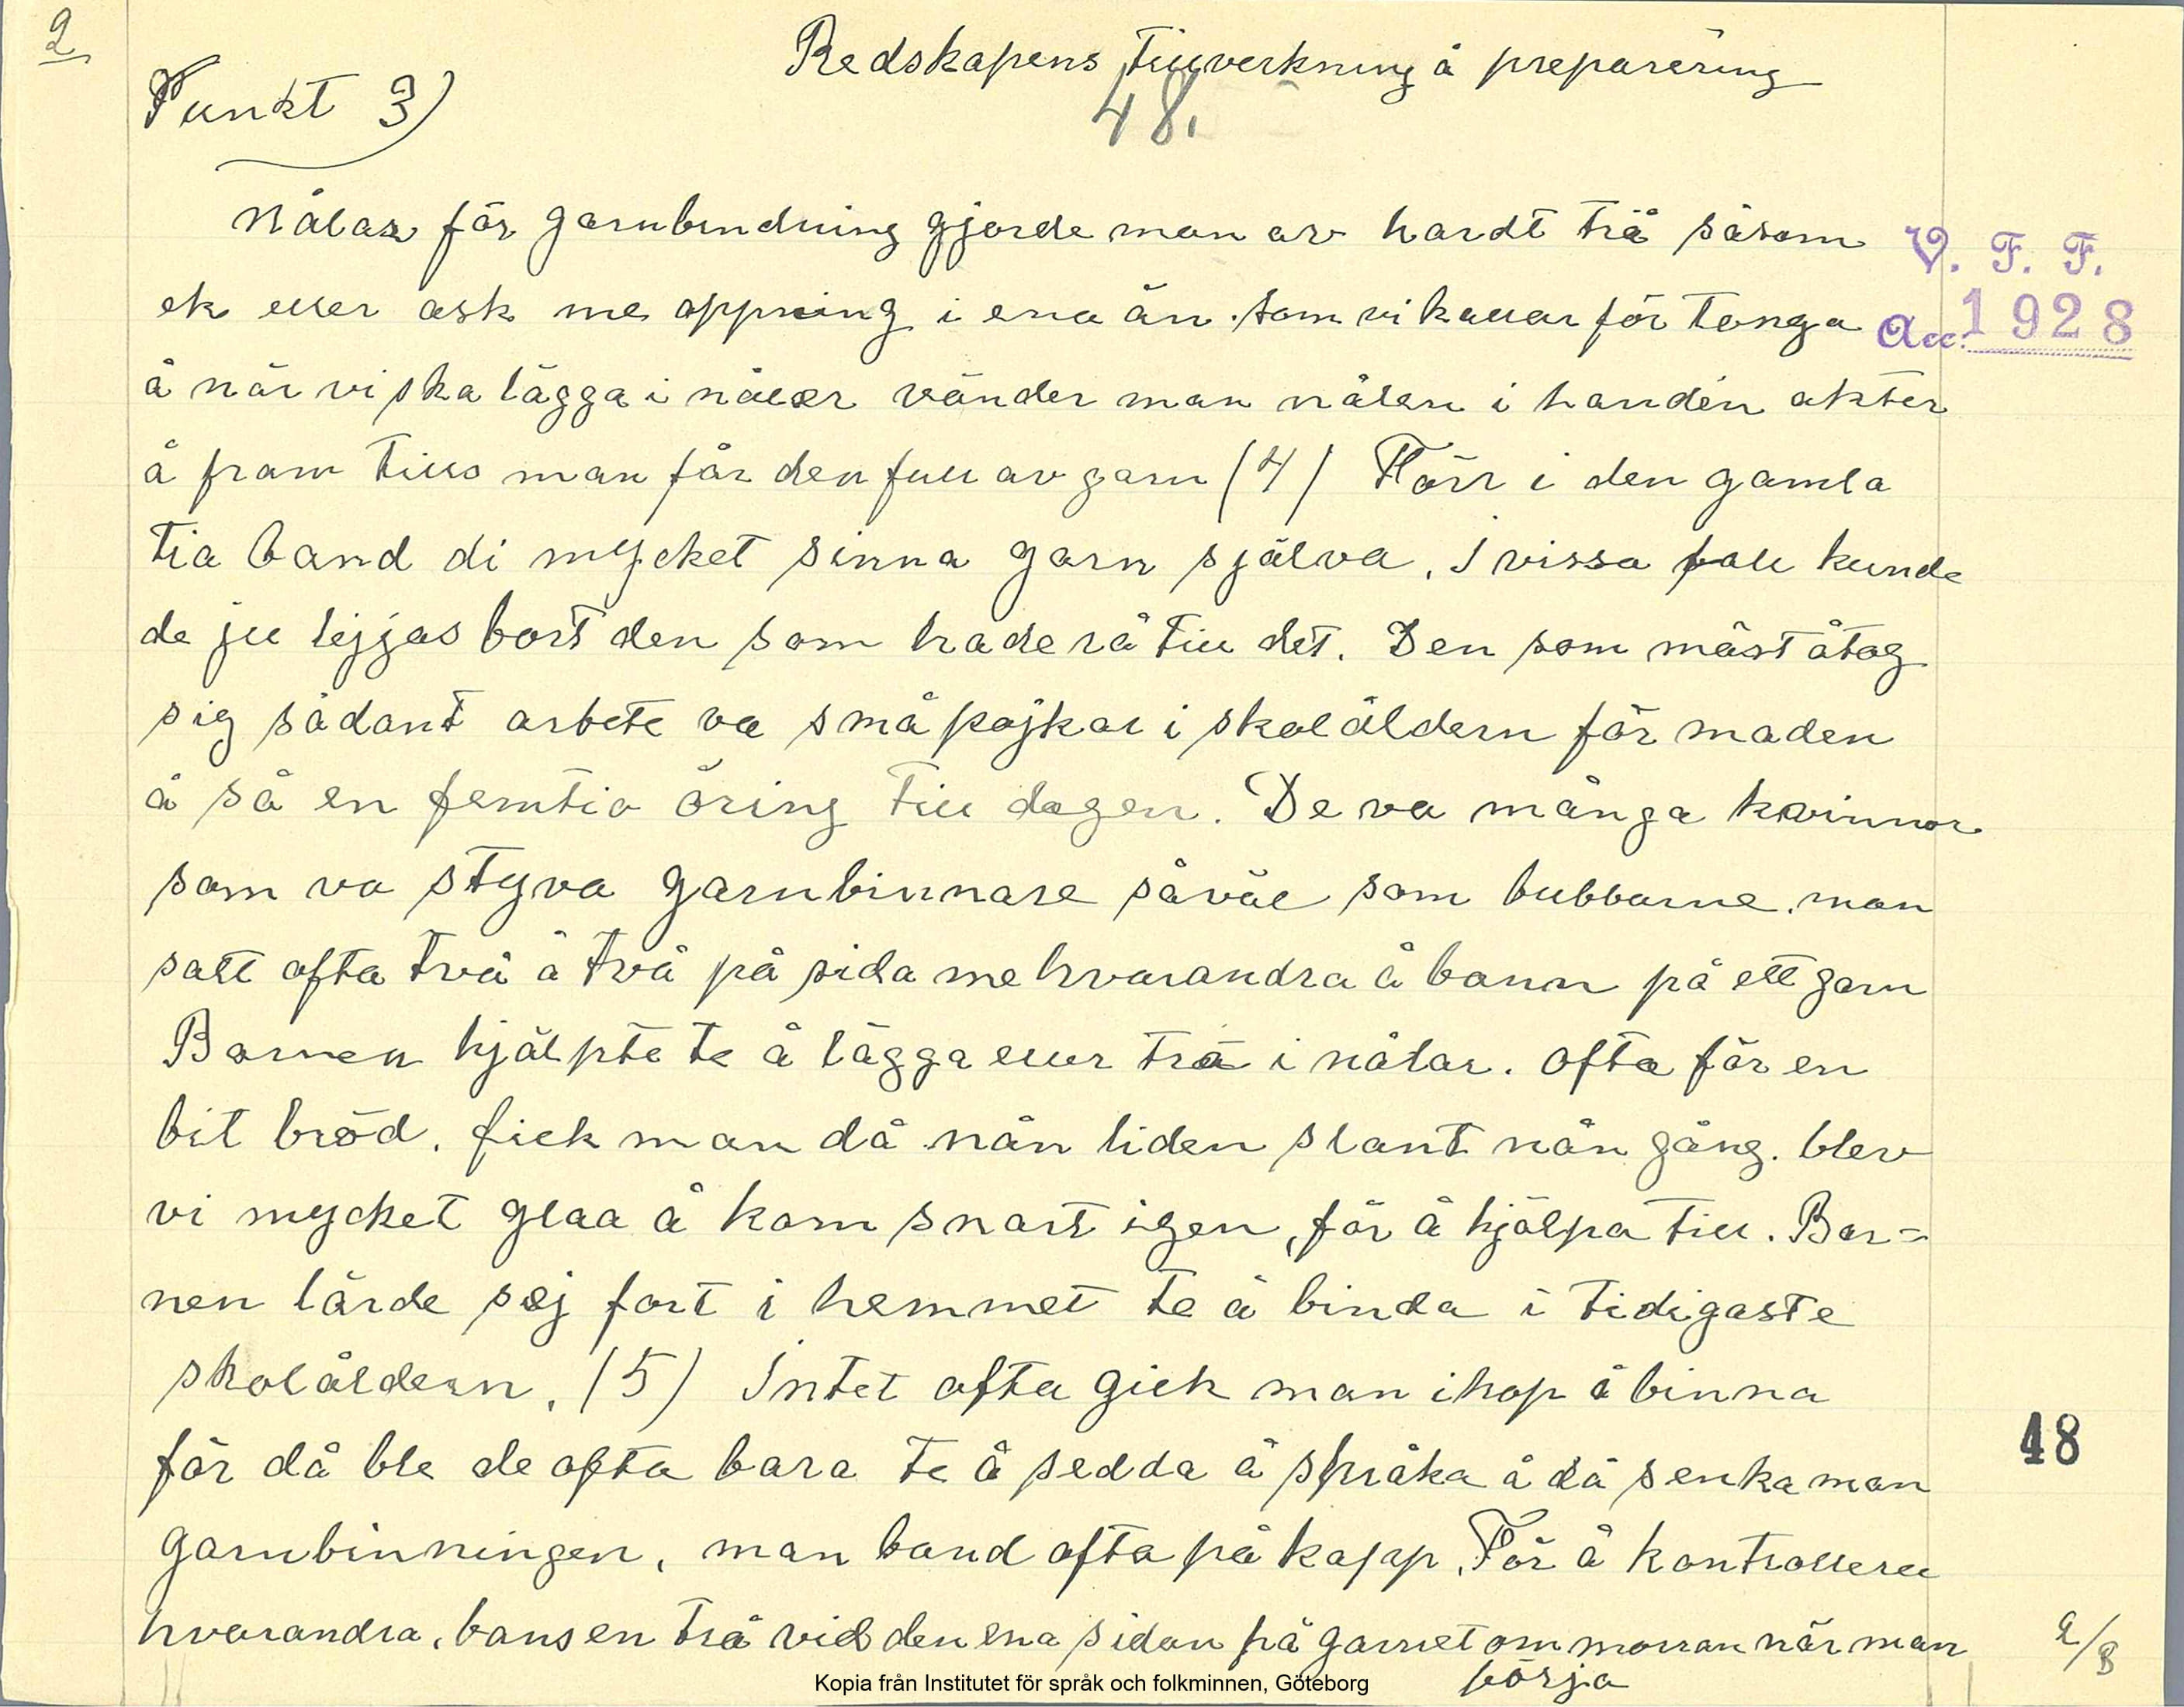 2
Redskapens tillverkning å preparering
Punkt 3)
48.
Nålar för garnbindning gjorde man av hardt trä såsom
V. F. F.
ek eller ask me öppning i ena än. som vi kallar för tonga
Acc. 1928
å när vi ska lägga i nålar vänder man nålen i handen akter
å fram tills man får den full av garn (4) Förr i den gamla
tia band di mycket sinna garn själva. I vissa fall kunde
de ju lejjas bort den som hade rå till det. Den som mäst åtog
sig sådant arbete va små pojkar i skolåldern för maden
å så en femtio öring till dagen. De va många kvinnor
som va styva garnbinnare såväl som bubbarne. man
satt ofta två å två på sida me hvarandra å bann på ett garn
Barnen hjälpte te å lägga eller trä i nålar. ofta för en
bit bröd. fick man då nån liden slant nån gång. blev
vi mycket glaa å kom snart igen, för å hjälpa till. Bar=
nen lärde sej fort i hemmet te å binda i tidigaste
skolåldern. (5) Intet ofta gick man ihop å binna
för då ble de ofta bara te å sedda å språka å då senka man
48
garnbinningen. man band ofta på kapp. För å kontrollera
hvarandra. bans en trå vid den ena sidan på garnet om morran när man
börja
2/8
Kopia från Institutet för språk och folkminnen, Göteborg